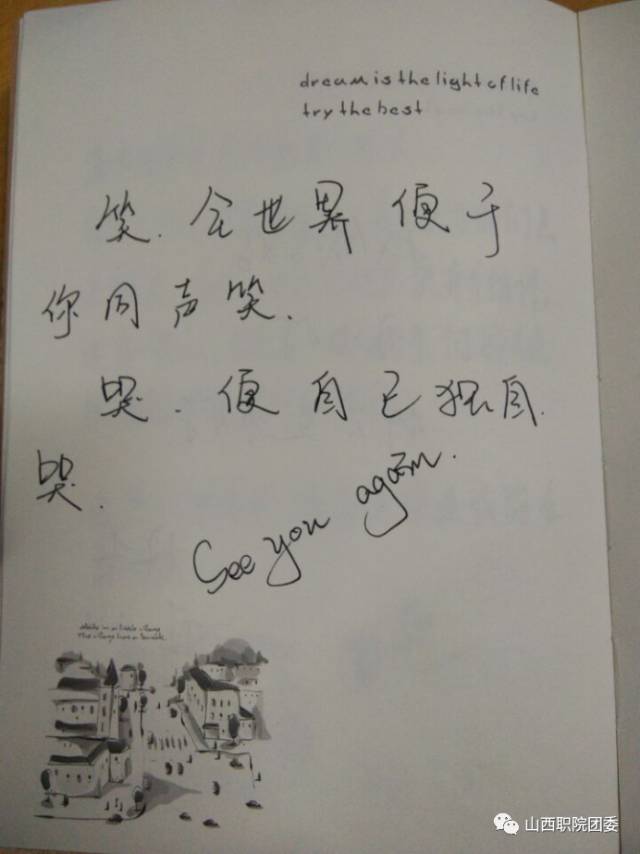 dream is the light of life
try the best
笑.全世界便于
你同声笑.
哭.便自己独自
哭.
See you again.
山西职院团委